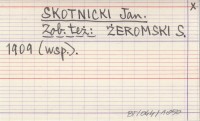 x
SKOTNICKI Jan.
Zob. też: ŻEROMSKI S.
1909 (wsp.).